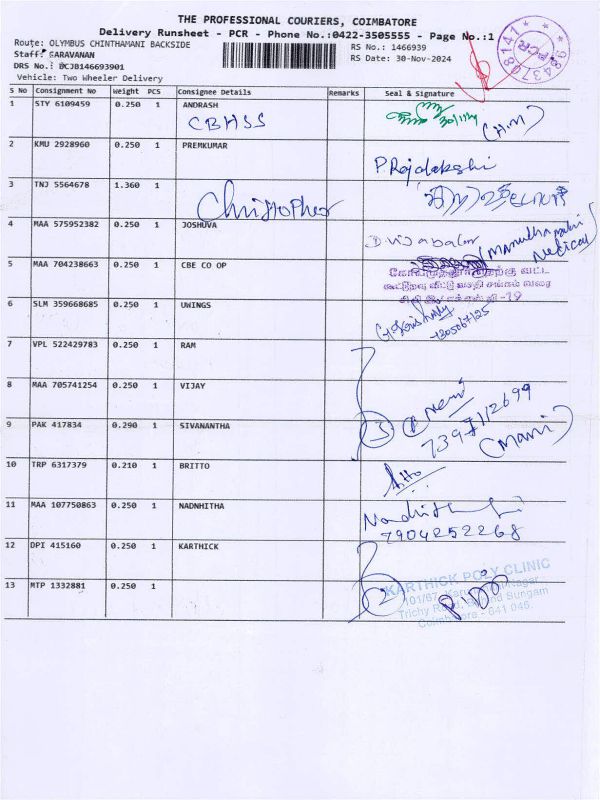 THE PROFESSIONAL COURIERS, COIMBATORE
Delivery Runsheet - PCR - Phone No.:0422-3505555 - Page No.:1
Route: OLYMBUS CHINTHAMANI BACKSIDE RS No.: 1466939
Staff: SARAVANAN RS Date: 30-Nov-2024
DRS No.: DCJB146693901
Vehicle: Two Wheeler Delivery
9843708141 PCR
S No Consignment No Weight PCS Consignee Details Remarks Seal & Signature
1 STY 6109459 0.250 1 ANDRASH
CBHSS (H.M)
2 KMU 2928960 0.250 1 PREMKUMAR
P.Rajalakshi
3 TNJ 5564678 1.360 1
Christopher
4 MAA 575952382 0.250 1 JOSHUVA
Medical)
5 MAA 704238663 0.250 1 CBE CO OP
6 SLM 359668685 0.250 1 UWINGS
7 VPL 522429783 0.250 1 RAM
8 MAA 705741254 0.250 1 VIJAY
3 7397112699
9 PAK 417834 0.290 1 SIVANANTHA
(Mani)
10 TRP 6317379 0.210 1 BRITTO
11 MAA 107750863 0.250 1 NADNHITHA
7904252268
12 DPI 415160 0.250 1 KARTHICK
KARTHICK POLY CLINIC
13 MTP 1332881 0.250 1
2
Trichy Road, Behind Sungam
Coimbatore - 641 045.